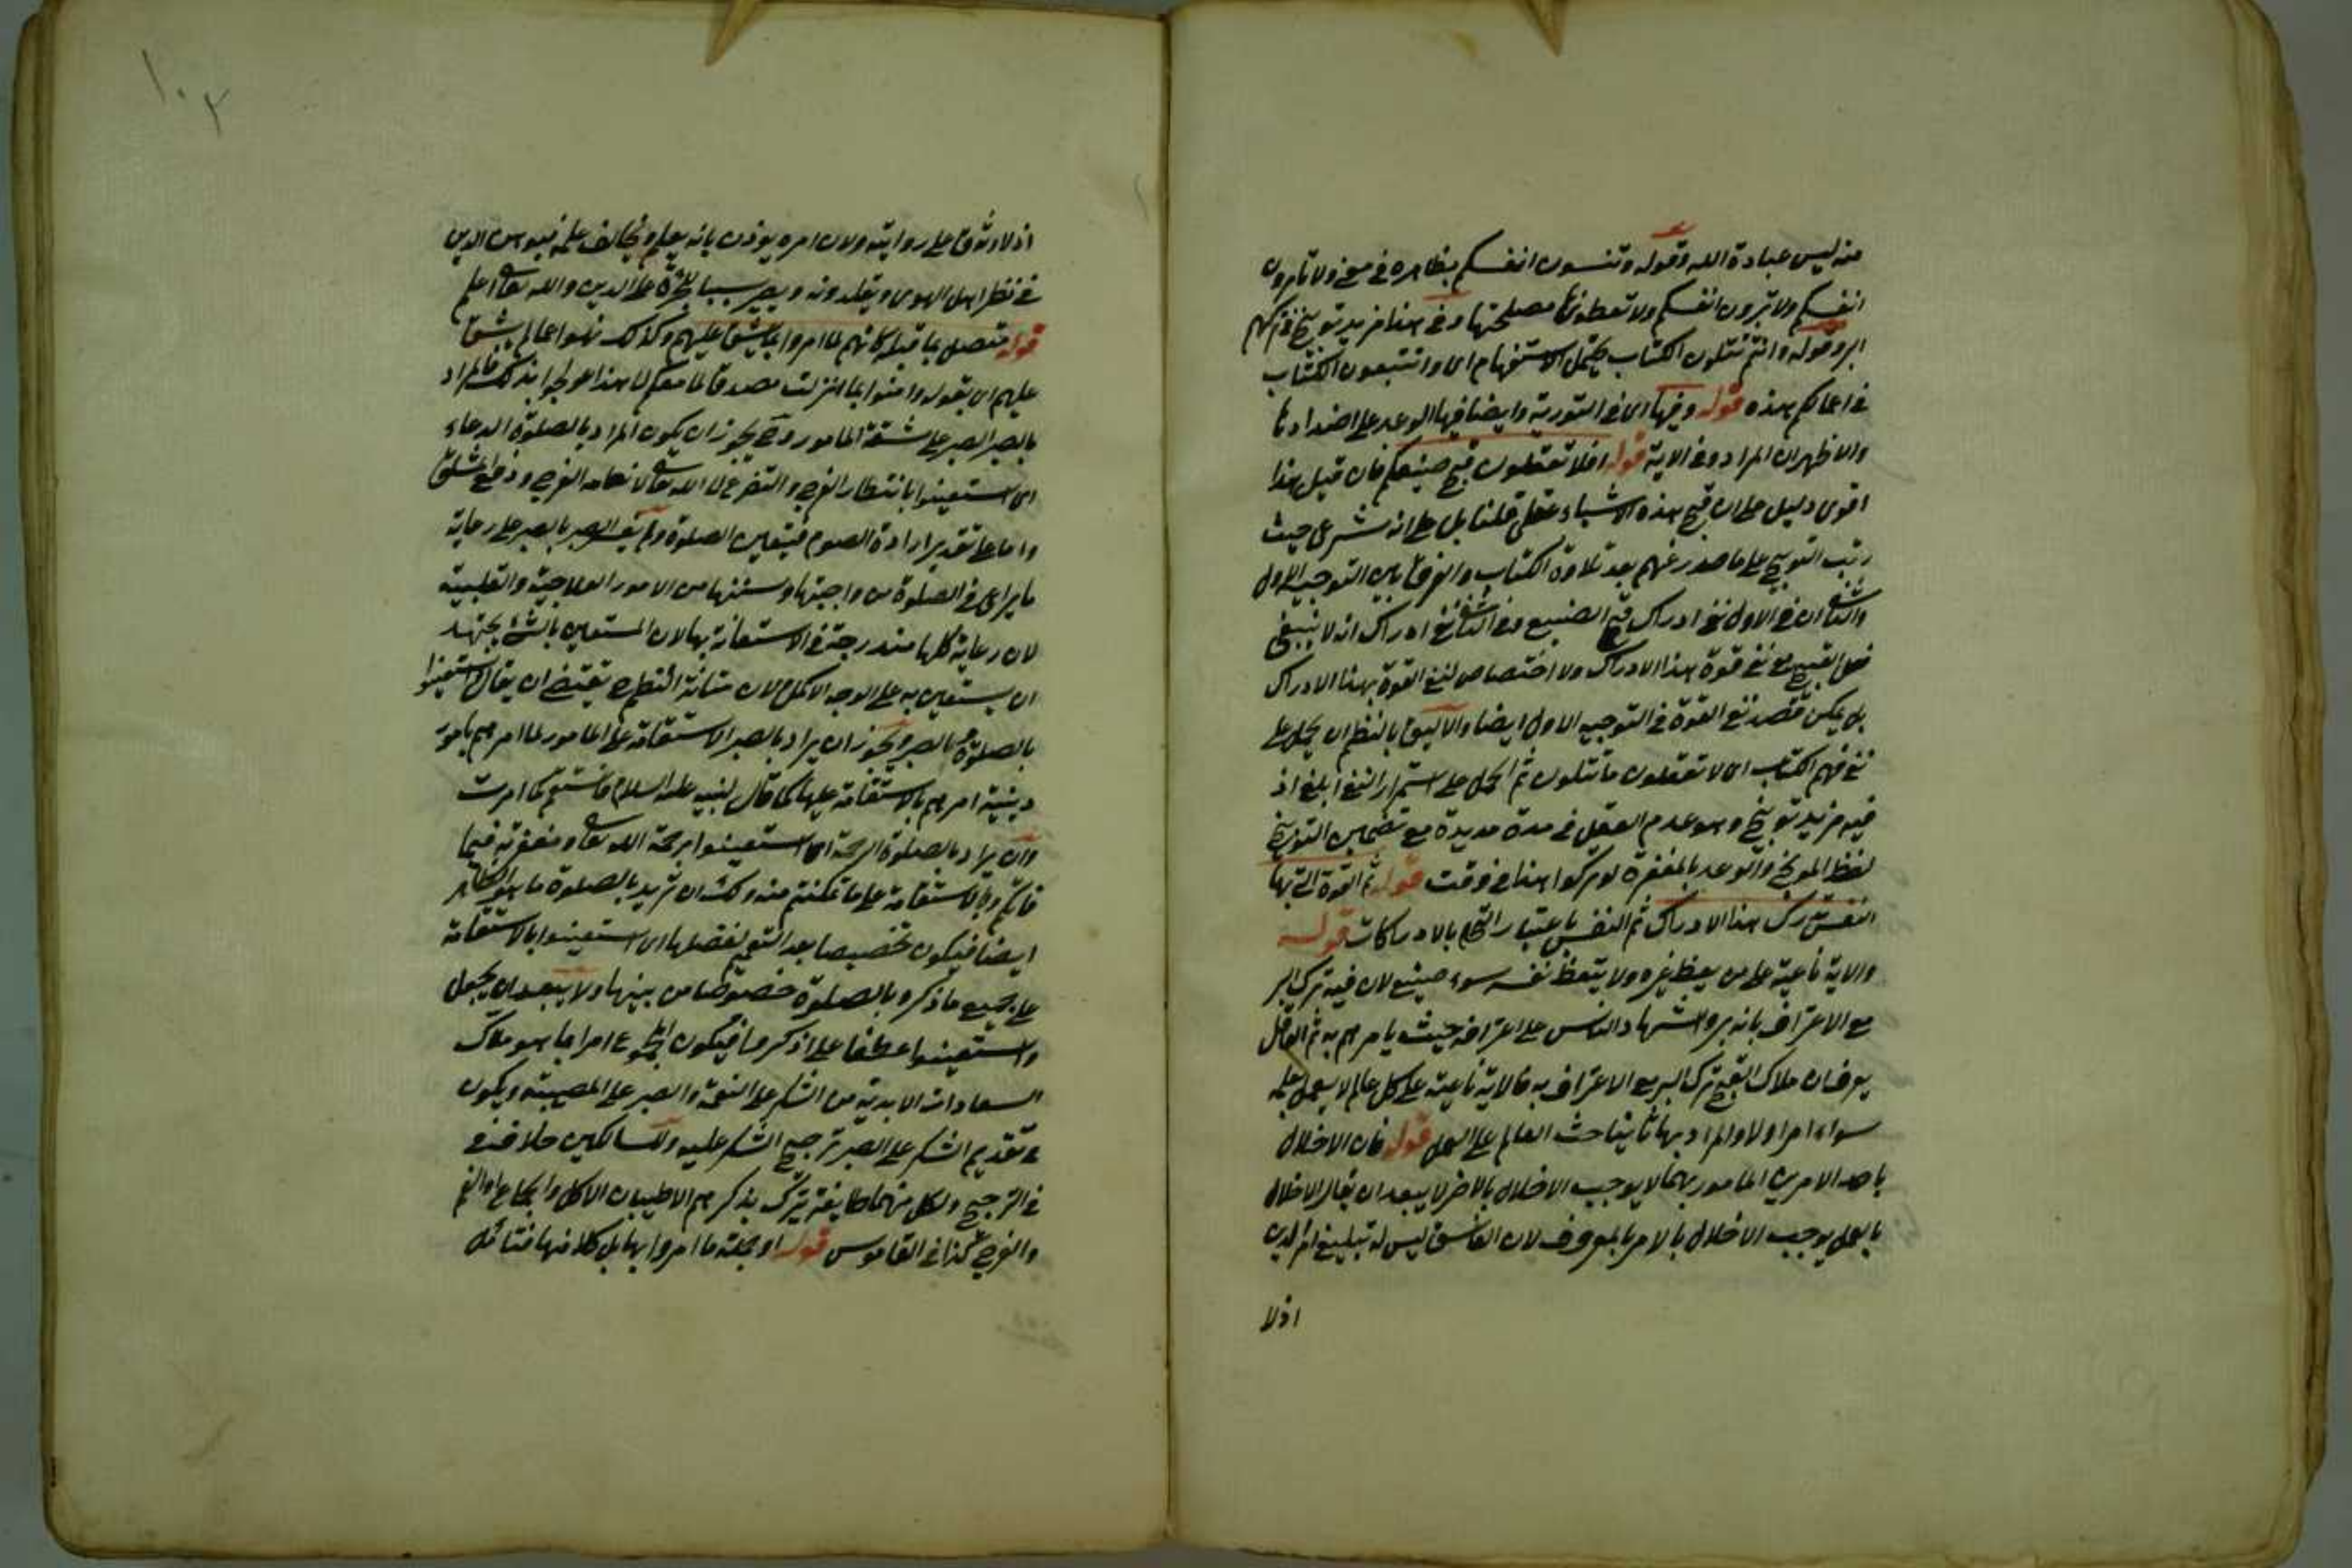 منه ليس عبادة الله وقوله وتنسون انفسكم بظاهره في معنى ولا تامرون
انفسكم ولا تبرون انفسكم ولا تعطونها مصلحتها وفي هذا مزيد توبيخ في تركهم
البر وقوله وانتم تتلون الكتاب يحتمل الاستفهام اى وانتم تتبعون الكتاب
في اعمالكم هذه قوله وفيها اى في التورية وايضا فيها الوعد على اضدادها
والاظهر ان المراد وفي الاية قوله افلا تعقلون قبح صنيعكم فان قيل هذا
اقوى دليل على ان قبح هذه الاشياء عقلى قلنا بل على انه شرعى حيث
رتب التوبيخ على ما صدر عنهم بعد تلاوة الكتاب والفرق بين التوجيه الاول
والثانى ان في الاول نفى ادراك قبح الصنيع وفي الثانى نفى ادراك انه لا ينبغى
فعل القبيح مع نفى قوة هذا الادراك ولا اختصاص لنفى القوة بهذا الادراك
بل يمكن قصد نفى القوة في التوجيه الاول ايضا والاليق بالنظم ان يحمل على
نفى فهم الكتاب اى لا تعقلون ما تتلون ثم الحمل على استمرار النفى ابلغ اذ
فيه مزيد توبيخ وهو عدم العقل في مدة مديدة مع تضمين التوبيخ
لفظ الموبخ والوعد بالمغفرة لو تركوا هذا في وقت قوله ثم القوة التى بها
النفس تدرك هذا الادراك ثم النفس باعتبار بالادراكات قوله
والاية ناعية على من يعظ غيره ولا يتعظ نفسه سوء صنيعه لان فيه ترك البر
مع الاعتراف بانه بر واشهاد الناس على اعترافه حيث يامرهم به ثم العاقل
يعرف ان ملاك القبح ترك البر مع الاعتراف به فالاية ناعية على كل عالم لا يعمل بعلمه
سواء امر اولا والمراد بها حث العالم على العمل قوله فان الاخلال
باحد الامرين المامور بهما لا يوجب الاخلال بالاخر لا يبعد ان يقال الاخلال
بالعمل يوجب الاخلال بالامر بالمعروف لان الفاسق ليس له تبليغ امر الدين
اذ لا
١٠٢
اذ لا وثوق على روايته ولان امره يوذن بانه يعلم ويخالف علمه فيهون الدين
في نظر اهل الهوى ويقلدونه ويصير سببا للجرأة على الدين والله تعالى اعلم
قوله متصل بما قبله كانهم لما امروا بما يشق عليهم وكذلك نهوا عما لم يشق
عليهم اى بقوله وامنوا بما انزلت مصدقا لما معكم الى هذا عولجوا بذلك فالمراد
بالصبر الصبر على مشقة المامور وح يجوز ان يكون المراد بالصلوة الدعاء
اى استعينوا بانتظار الفرج والتضرع الى الله تعالى
واما على تقدير ارادة الصوم فيتعين الصلوة ولم يفسر الصبر بالصبر على رعاية
ما يراعى في الصلوة من واجبتها وسننها من الامور العلاجية والقلبية
لان رعاية كلها مندرجة في الاستعانة بها لان المستعين بالشئ يجتهد
ان يستعين به على الوجه الاكمل لان متانة النظم ح يقتضى ان يقال استعينوا
بالصلوة والصبر ويجوز ان يراد بالصبر الاستقامة على المامور لما امرهم بامور
دينية امرهم بالاستقامة عليها كما قال لنبيه عليه السلام فاستقم كما امرت
وان يراد بالصلوة الرحمة اى استعينوا برحمة الله تعالى ومغفرته فيما
فاتكم وبالاستقامة على ما تمكنتم منه ولك ان تريد بالصلوة ما هو الظاهر
ايضا فيكون تخصيصا بعد التعميم لفضلها اى استعينوا بالاستقامة
على جميع ما ذكر وبالصلوة خصوصا من بينها ولا يبعد ان يجعل
واستعينوا عطفا على اذكروا فيكون المجموع امرا بما هو ملاك
السعادات الابدية من الشكر على النعمة والصبر على المصيبة ويكون
في تقديم الشكر على الصبر ترجيح الشكر عليه وللسالكين خلاف
في الترجيح ولكل منهما طايفة يتبرك بذكرهم الاطيبان الاكل والجماع
والفرج كذا في القاموس قوله او جملة ما امروا بها بل كلا منها فتامل